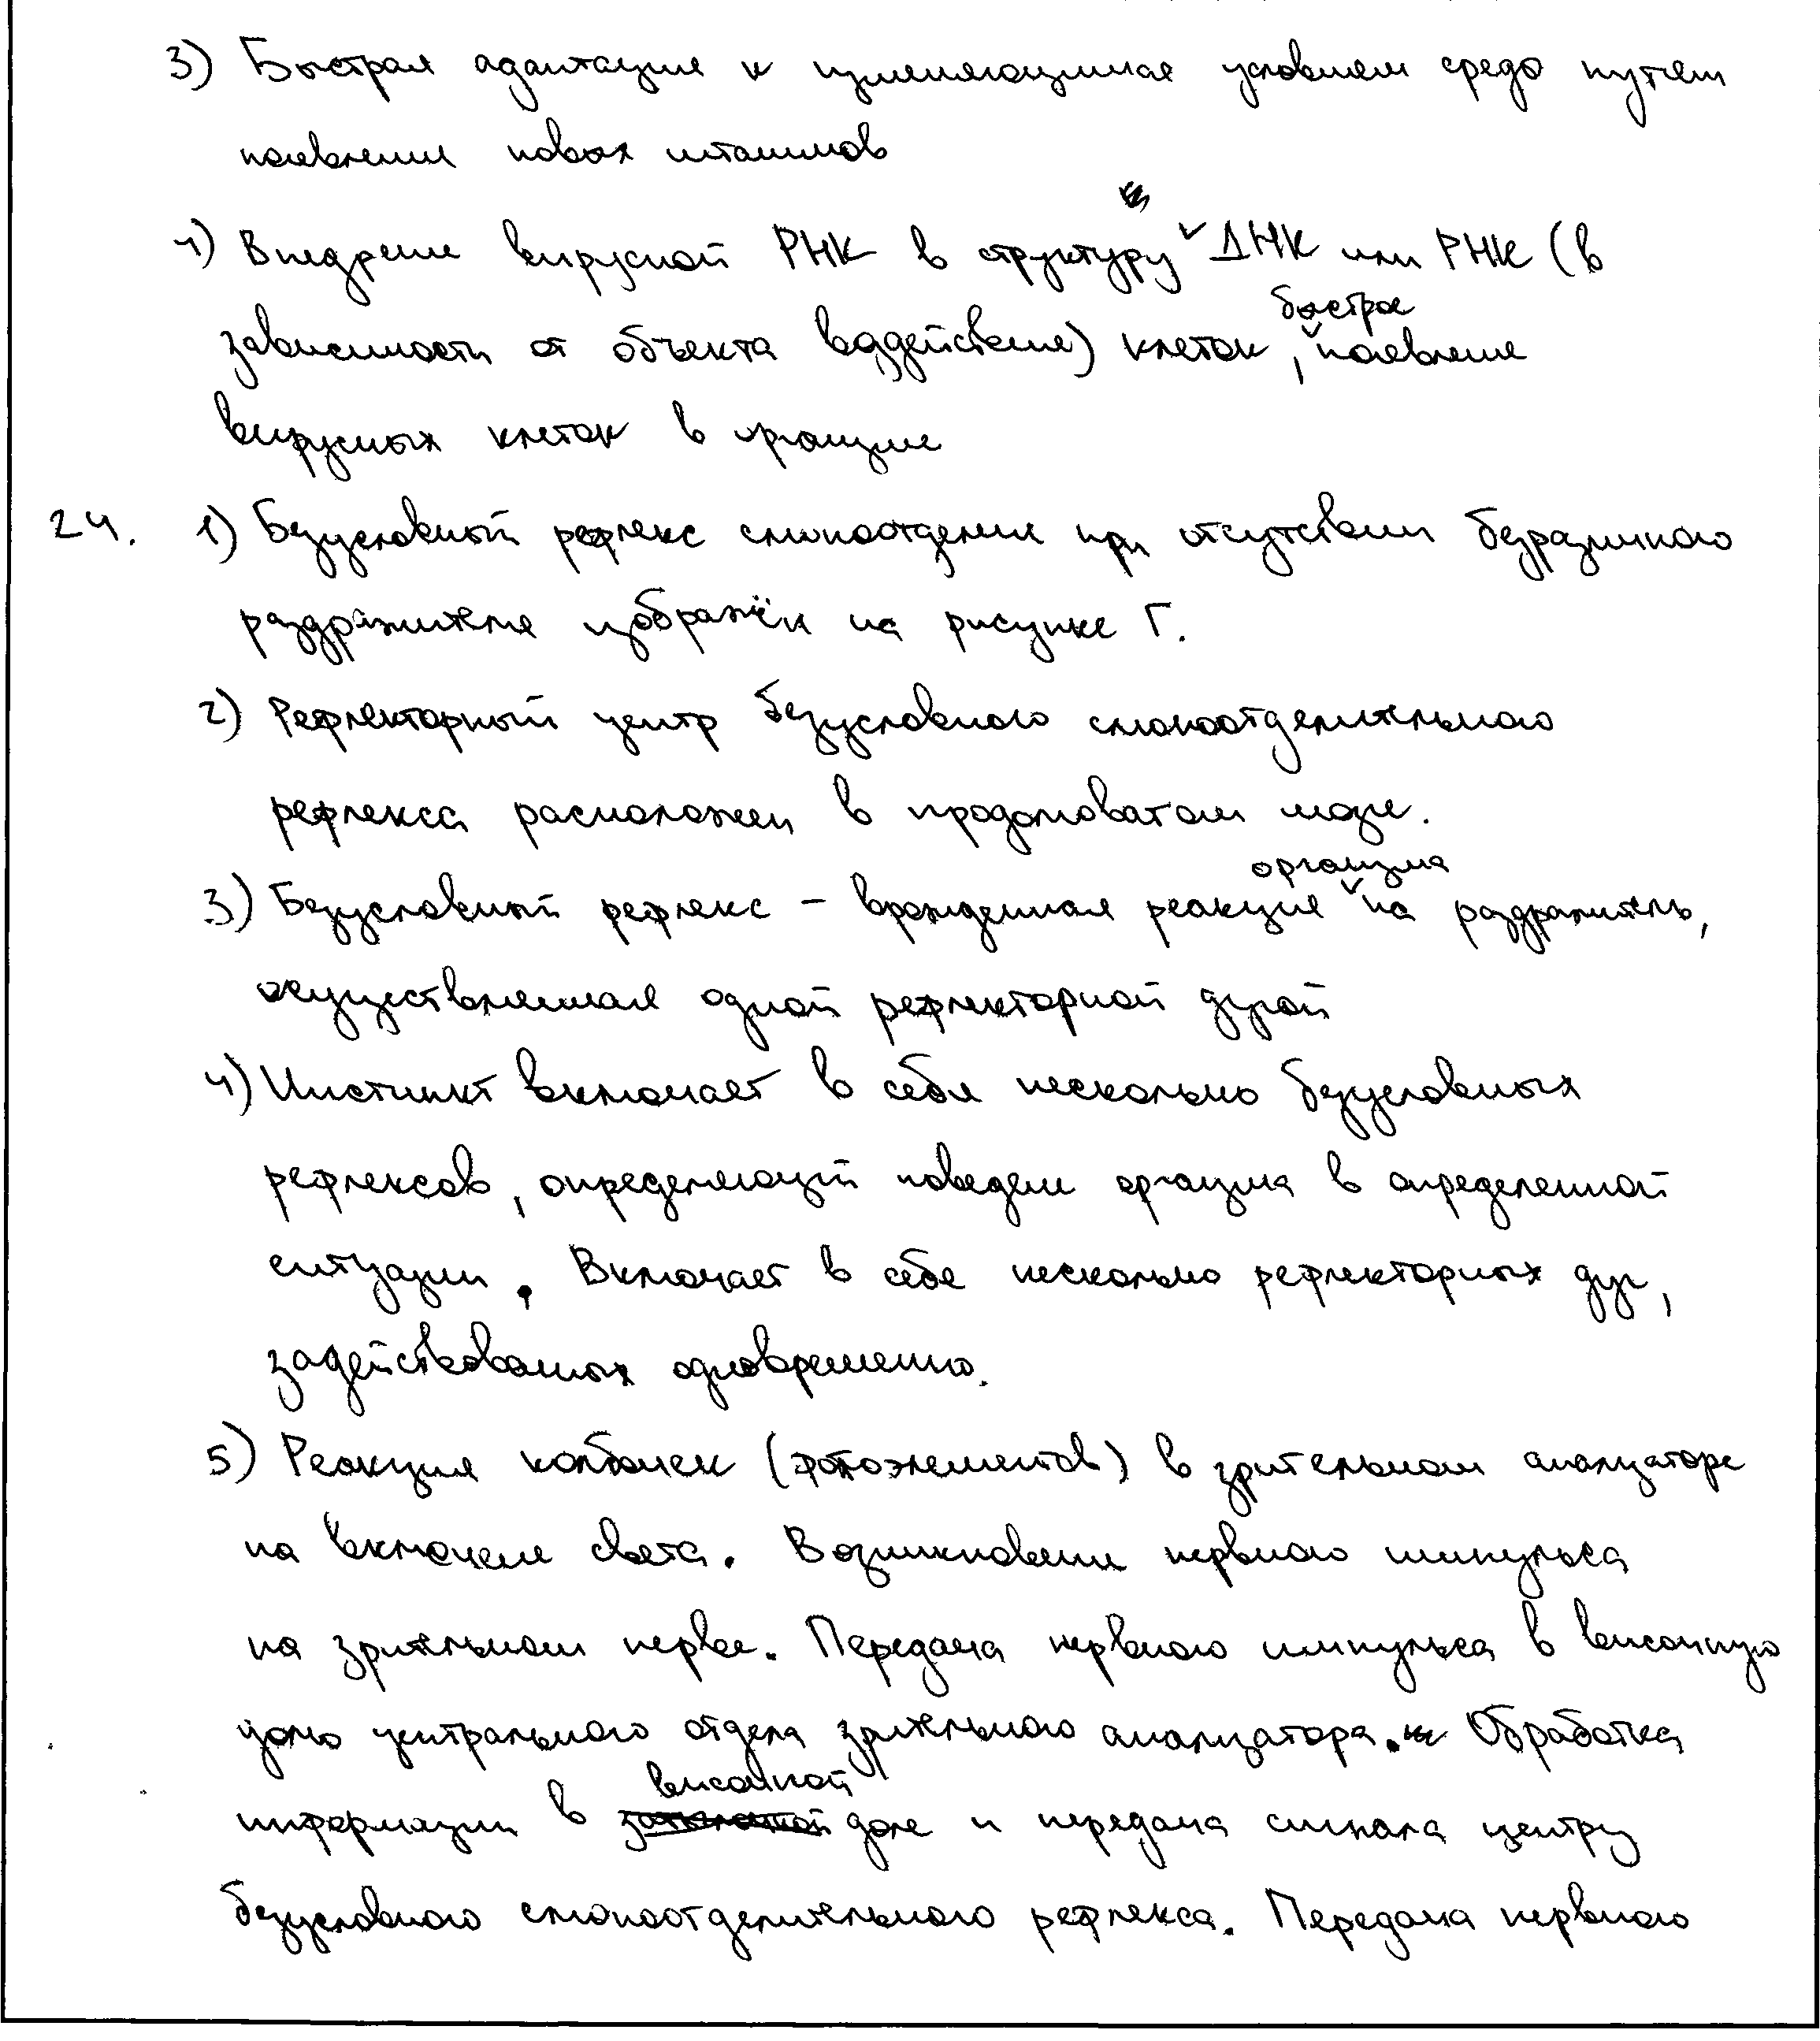 3) Быстрая адаптация к изменяющимся условиям среды путём
появления новых штаммов
4) Внедрение вирусной РНК в структуру ДНК или РНК (в
зависимости от объекта воздействия) клеток, быстрое появление
вирусных клеток в организме
24. 1) Безусловный рефлекс слюноотделения при отсутствии безразличного
раздражителя изображён на рисунке Г.
2) Рефлекторный центр безусловного слюноотделительного
рефлекса расположен в продолговатом мозге.
3) Безусловный рефлекс – врожденная реакция организма на раздражитель,
осуществляемая одной рефлекторной дугой
4) Инстинкт включает в себя несколько безусловных
рефлексов, определяющий поведение организма в определенной
ситуации. Включает в себя несколько рефлекторных дуг,
задействованных одновременно.
5) Реакция колбочек (фотоэлементов) в зрительном анализаторе
на включение света. Возникновение нервного импульса
на зрительном нерве. Передача нервного импульса в височную
долю центрального отдела зрительного анализатора. Обработка
информации в височной доле и передача сигнала центру
безусловного слюноотделительного рефлекса. Передача нервного